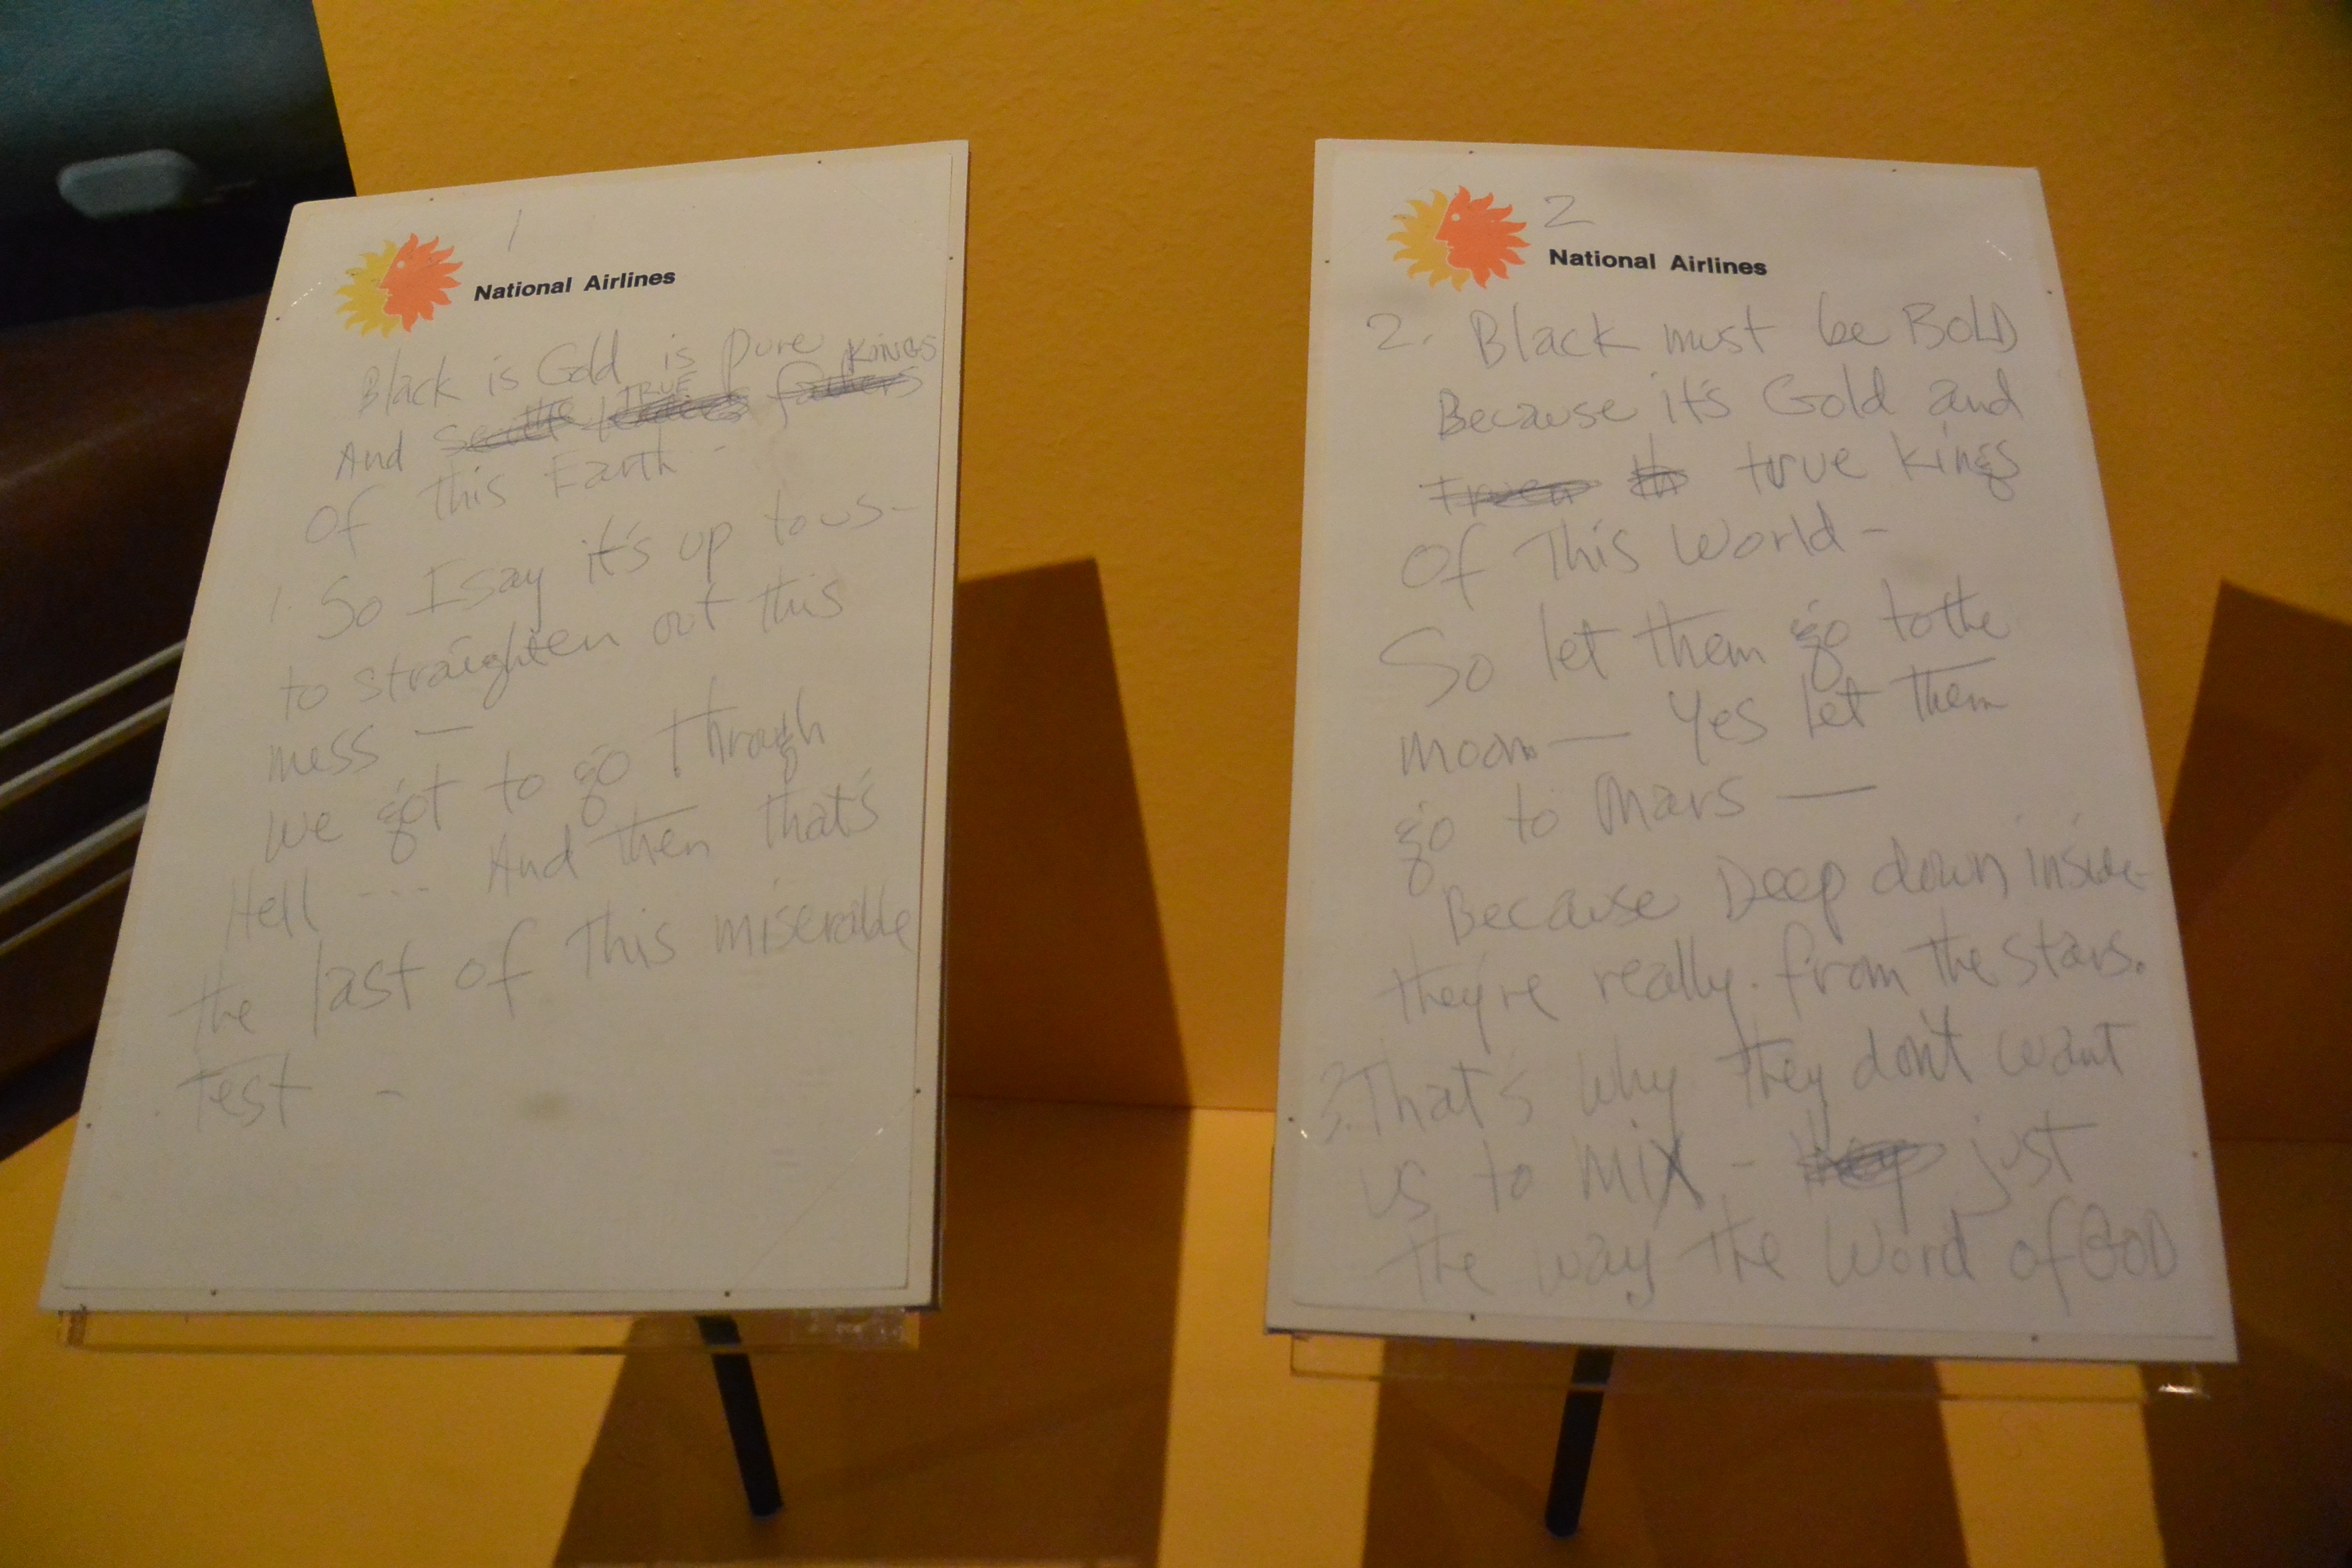 1
National Airlines
Black is Gold is pure
And the TRUE KINGS
Of This Earth -
1. So I say it's up to us -
to straighten out this
mess —
We got to go Through
Hell ---- And then that's
the last of This miserable
Test -
2
National Airlines
2. Black must be BOLD
Because it's Gold and
true kings
Of This World -
So let them go to the
moon — Yes let Them
go to Mars —
Because Deep down inside
they're really. from the stars.
3. That's why They don't want
us to MIX - just
the way the Word of GOD